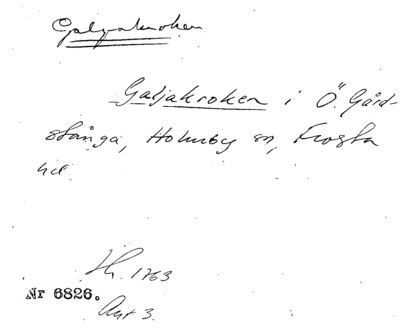 Galjakroken
Galjakroken i Ö. Gård-
stånga, Holmby sn, Frosta
hd.
Lh. 1763
Nr 6826.
Akt 3.